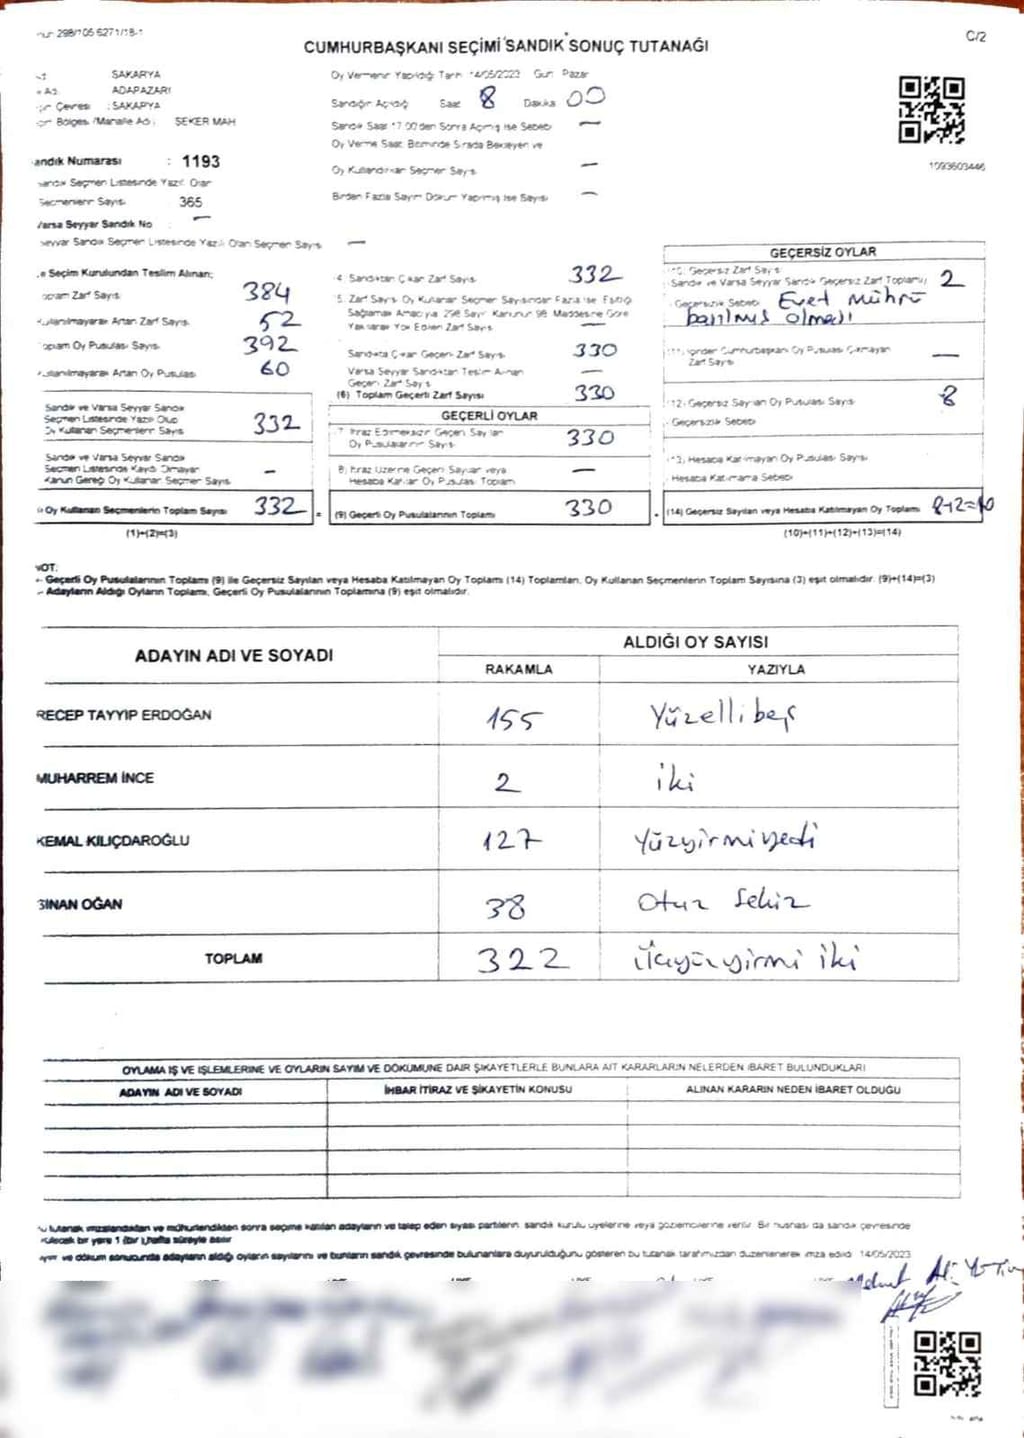 298/105 6271/18-1
C/2
CUMHURBAŞKANI SEÇİMİ SANDIK SONUÇ TUTANAĞI
SAKARYA
ADAPAZARI
Çevresi : SAKARYA
Bölgesi /Mahalle Adı : ŞEKER MAH
Oy Vermenin Yapıldığı Tarih 14/05/2023 Gün Pazar
Sandığın Açıldığı Saat 8 Dakika 00
Sandık Saat 17:00'den Sonra Açılmış İse Sebebi —
Oy Verme Saati Bitiminde Sırada Bekleyen ve
Oy Kullandırılan Seçmen Sayısı —
Birden Fazla Sayım Döküm Yapılmış İse Sayısı —
1093603446
andık Numarası : 1193
Sandık Seçmen Listesinde Yazılı Olan
Seçmenlerin Sayısı 365
Varsa Seyyar Sandık No —
Seyyar Sandık Seçmen Listesinde Yazılı Olan Seçmen Sayısı —
e Seçim Kurulundan Teslim Alınan;
Toplam Zarf Sayısı 384
Kullanılmayarak Artan Zarf Sayısı 52
Toplam Oy Pusulası Sayısı 392
Kullanılmayarak Artan Oy Pusulası 60
Sandık ve Varsa Seyyar Sandık
Seçmen Listesinde Yazılı Olup
Oy Kullanan Seçmenlerin Sayısı 332
Sandık ve Varsa Seyyar Sandık
Seçmen Listesinde Kaydı Olmayan
Kanun Gereği Oy Kullanan Seçmen Sayısı –
Oy Kullanan Seçmenlerin Toplam Sayısı 332 =
(1)+(2)=(3)
4) Sandıktan Çıkan Zarf Sayısı 332
5) Zarf Sayısı Oy Kullanan Seçmen Sayısından Fazla ise Eşitliği
Sağlamak Amacıyla 298 Sayılı Kanunun 98. Maddesine Göre
Yakılarak Yok Edilen Zarf Sayısı —
Sandıkta Çıkan Geçerli Zarf Sayısı 330
Varsa Seyyar Sandıktan Teslim Alınan
Geçerli Zarf Sayısı —
(6) Toplam Geçerli Zarf Sayısı 330
GEÇERLİ OYLAR
7) İtiraz Edilmeksizin Geçerli Sayılan
Oy Pusulalarının Sayısı 330
8) İtiraz Üzerine Geçerli Sayılan veya
Hesaba Katılan Oy Pusulası Toplamı —
(9) Geçerli Oy Pusulalarının Toplamı 330
GEÇERSİZ OYLAR
(10) Geçersiz Zarf Sayısı
(Sandık ve Varsa Seyyar Sandık Geçersiz Zarf Toplamı) 2
Geçersizlik Sebebi Evet mührü
basılmış olmadı
(11) İçinden Cumhurbaşkanı Oy Pusulası Çıkmayan
Zarf Sayısı —
(12) Geçersiz Sayılan Oy Pusulası Sayısı 8
Geçersizlik Sebebi
(13) Hesaba Katılmayan Oy Pusulası Sayısı
Hesaba Katılmama Sebebi
(14) Geçersiz Sayılan veya Hesaba Katılmayan Oy Toplamı 8+2=10
(10)+(11)+(12)+(13)=(14)
NOT:
- Geçerli Oy Pusulalarının Toplamı (9) ile Geçersiz Sayılan veya Hesaba Katılmayan Oy Toplamı (14) Toplamları, Oy Kullanan Seçmenlerin Toplam Sayısına (3) eşit olmalıdır. (9)+(14)=(3)
- Adayların Aldığı Oyların Toplamı, Geçerli Oy Pusulalarının Toplamına (9) eşit olmalıdır.
ADAYIN ADI VE SOYADI
ALDIĞI OY SAYISI
RAKAMLA YAZIYLA
RECEP TAYYİP ERDOĞAN 155 Yüzellibeş
MUHARREM İNCE 2 iki
KEMAL KILIÇDAROĞLU 127 Yüzyirmiyedi
SİNAN OĞAN 38 Otuz Sekiz
TOPLAM 322 Üçyüzyirmi iki
OYLAMA İŞ VE İŞLEMLERİNE VE OYLARIN SAYIM VE DÖKÜMÜNE DAİR ŞİKAYETLERLE BUNLARA AİT KARARLARIN NELERDEN İBARET BULUNDUKLARI
ADAYIN ADI VE SOYADI İHBAR İTİRAZ VE ŞİKAYETİN KONUSU ALINAN KARARIN NEDEN İBARET OLDUĞU
tutanak imzalandıktan ve mühürlendikten sonra seçime katılan adayların ve talep eden siyasi partilerin sandık kurulu üyelerine veya gözlemcilerine verilir. Bir nüshası da sandık çevresinde
bir yere 1 (bir) hafta süreyle asılır
ve döküm sonucunda adayların aldığı oyların sayılarını ve bunların sandık çevresinde bulunanlara duyurulduğunu gösteren bu tutanak tarafımızdan düzenlenerek imza edildi 14/05/2023
Mehmet Ali